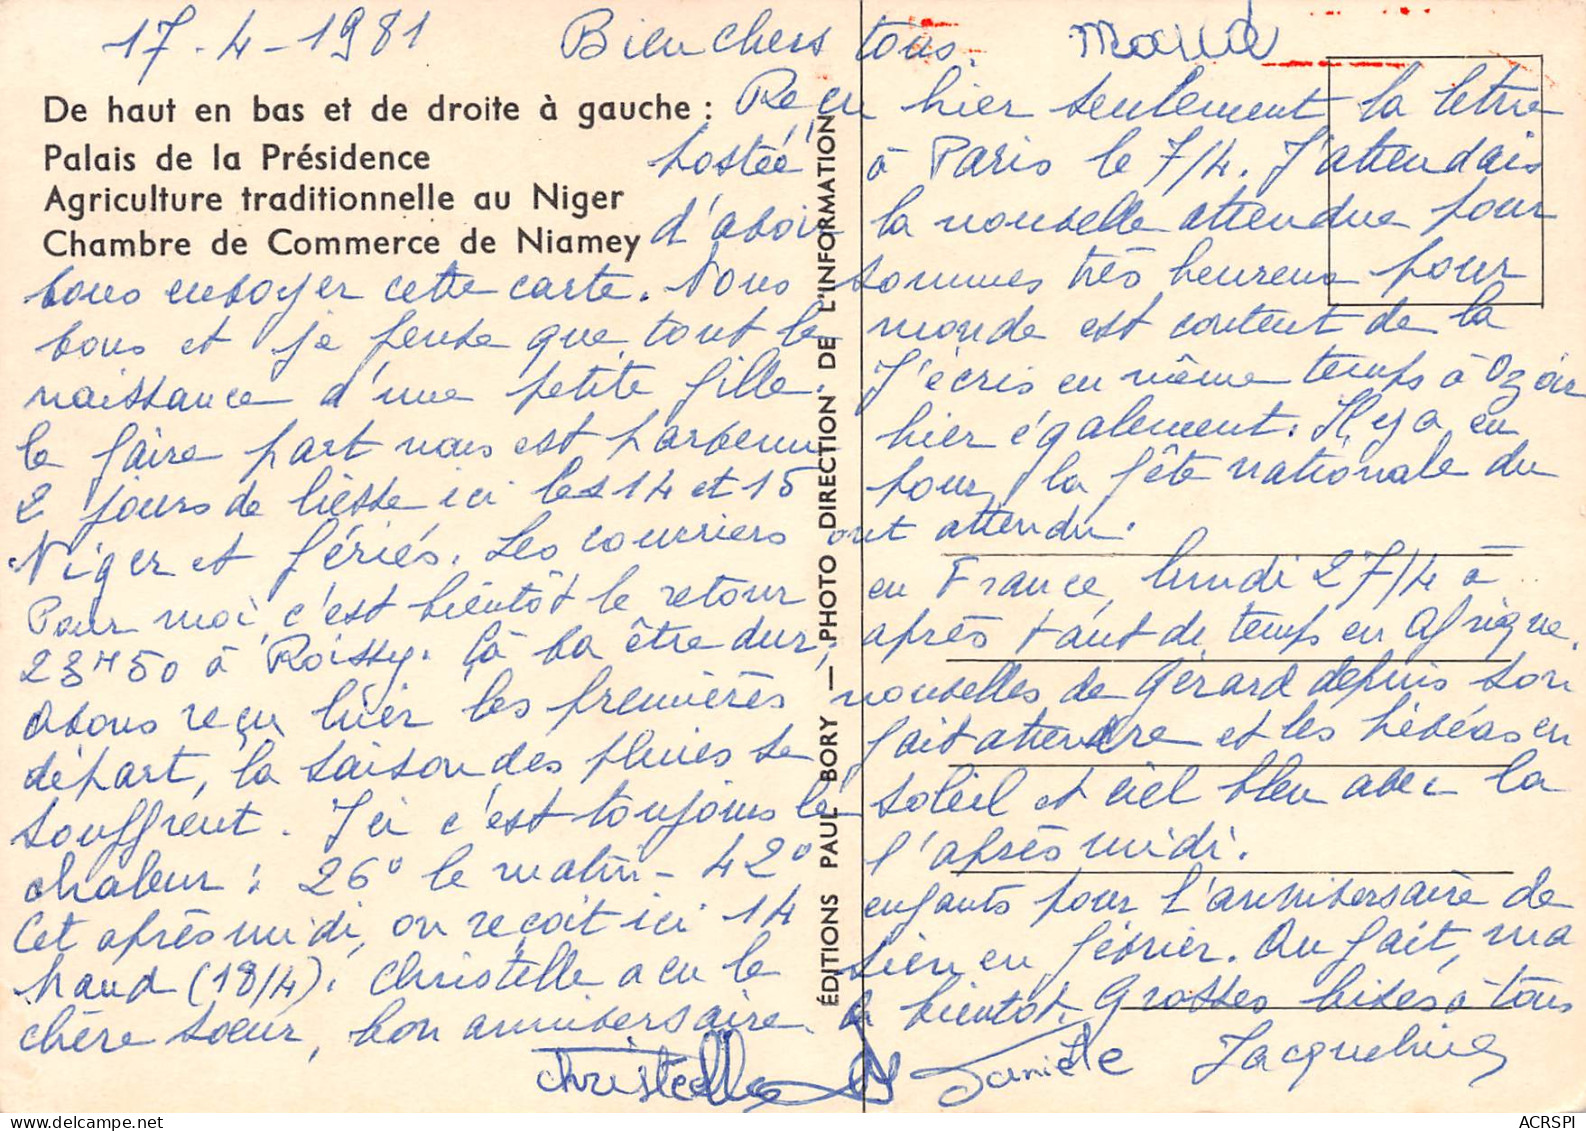 17-4-1981 Bien chers tous. Maud
De haut en bas et de droite à gauche :
Palais de la Présidence
Agriculture traditionnelle au Niger
Chambre de Commerce de Niamey
Reçu hier seulement la lettre
postée à Paris le 7/4. J'attendais
d'avoir la nouvelle attendue pour
vous envoyer cette carte. Nous sommes très heureux pour
vous et je pense que tout le monde est content de la
naissance d'une petite fille. J'écris en même temps à Ozoir
le faire part nous est parvenu hier également. Il y a eu
2 jours de liesse ici les 14 et 15 pour la fête nationale du
Niger et fériés. Les courriers ont attendu.
Pour moi, c'est bientôt le retour en France, lundi 27/4 à
23H50 à Roissy. Çà va être dur, après tant de temps en Afrique.
Avons reçu hier les premières nouvelles de Gérard depuis son
départ, la saison des pluies se fait attendre et les hévéas en
souffrent. Ici c'est toujours le soleil et ciel bleu avec la
chaleur : 26° le matin - 42° l'après midi.
Cet après midi, on reçoit ici 14 enfants pour l'anniversaire de
Maud (18/4). Christelle a eu le sien en février. Au fait, ma
chère soeur, bon anniversaire. A bientôt. Grosses bises à tous
Christelle Danièle Jacqueline
ÉDITIONS PAUL BORY — PHOTO DIRECTION DE L'INFORMATION
ACRSPI